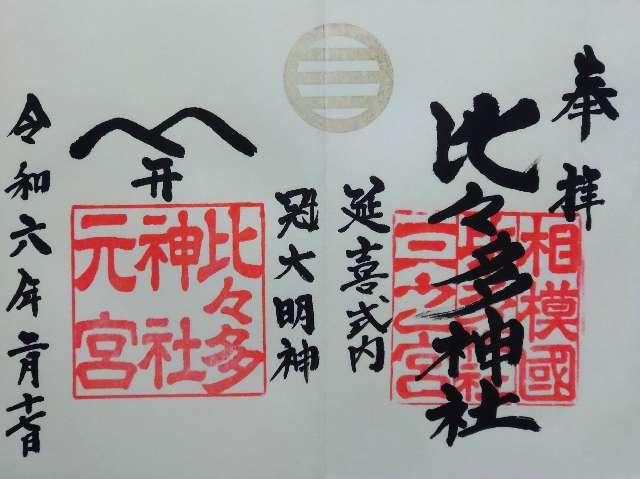 奉拝
相模國
三之宮
比々多神社
延喜式内
冠大明神
开
比々多
神社
元宮
令和六年二月十七日